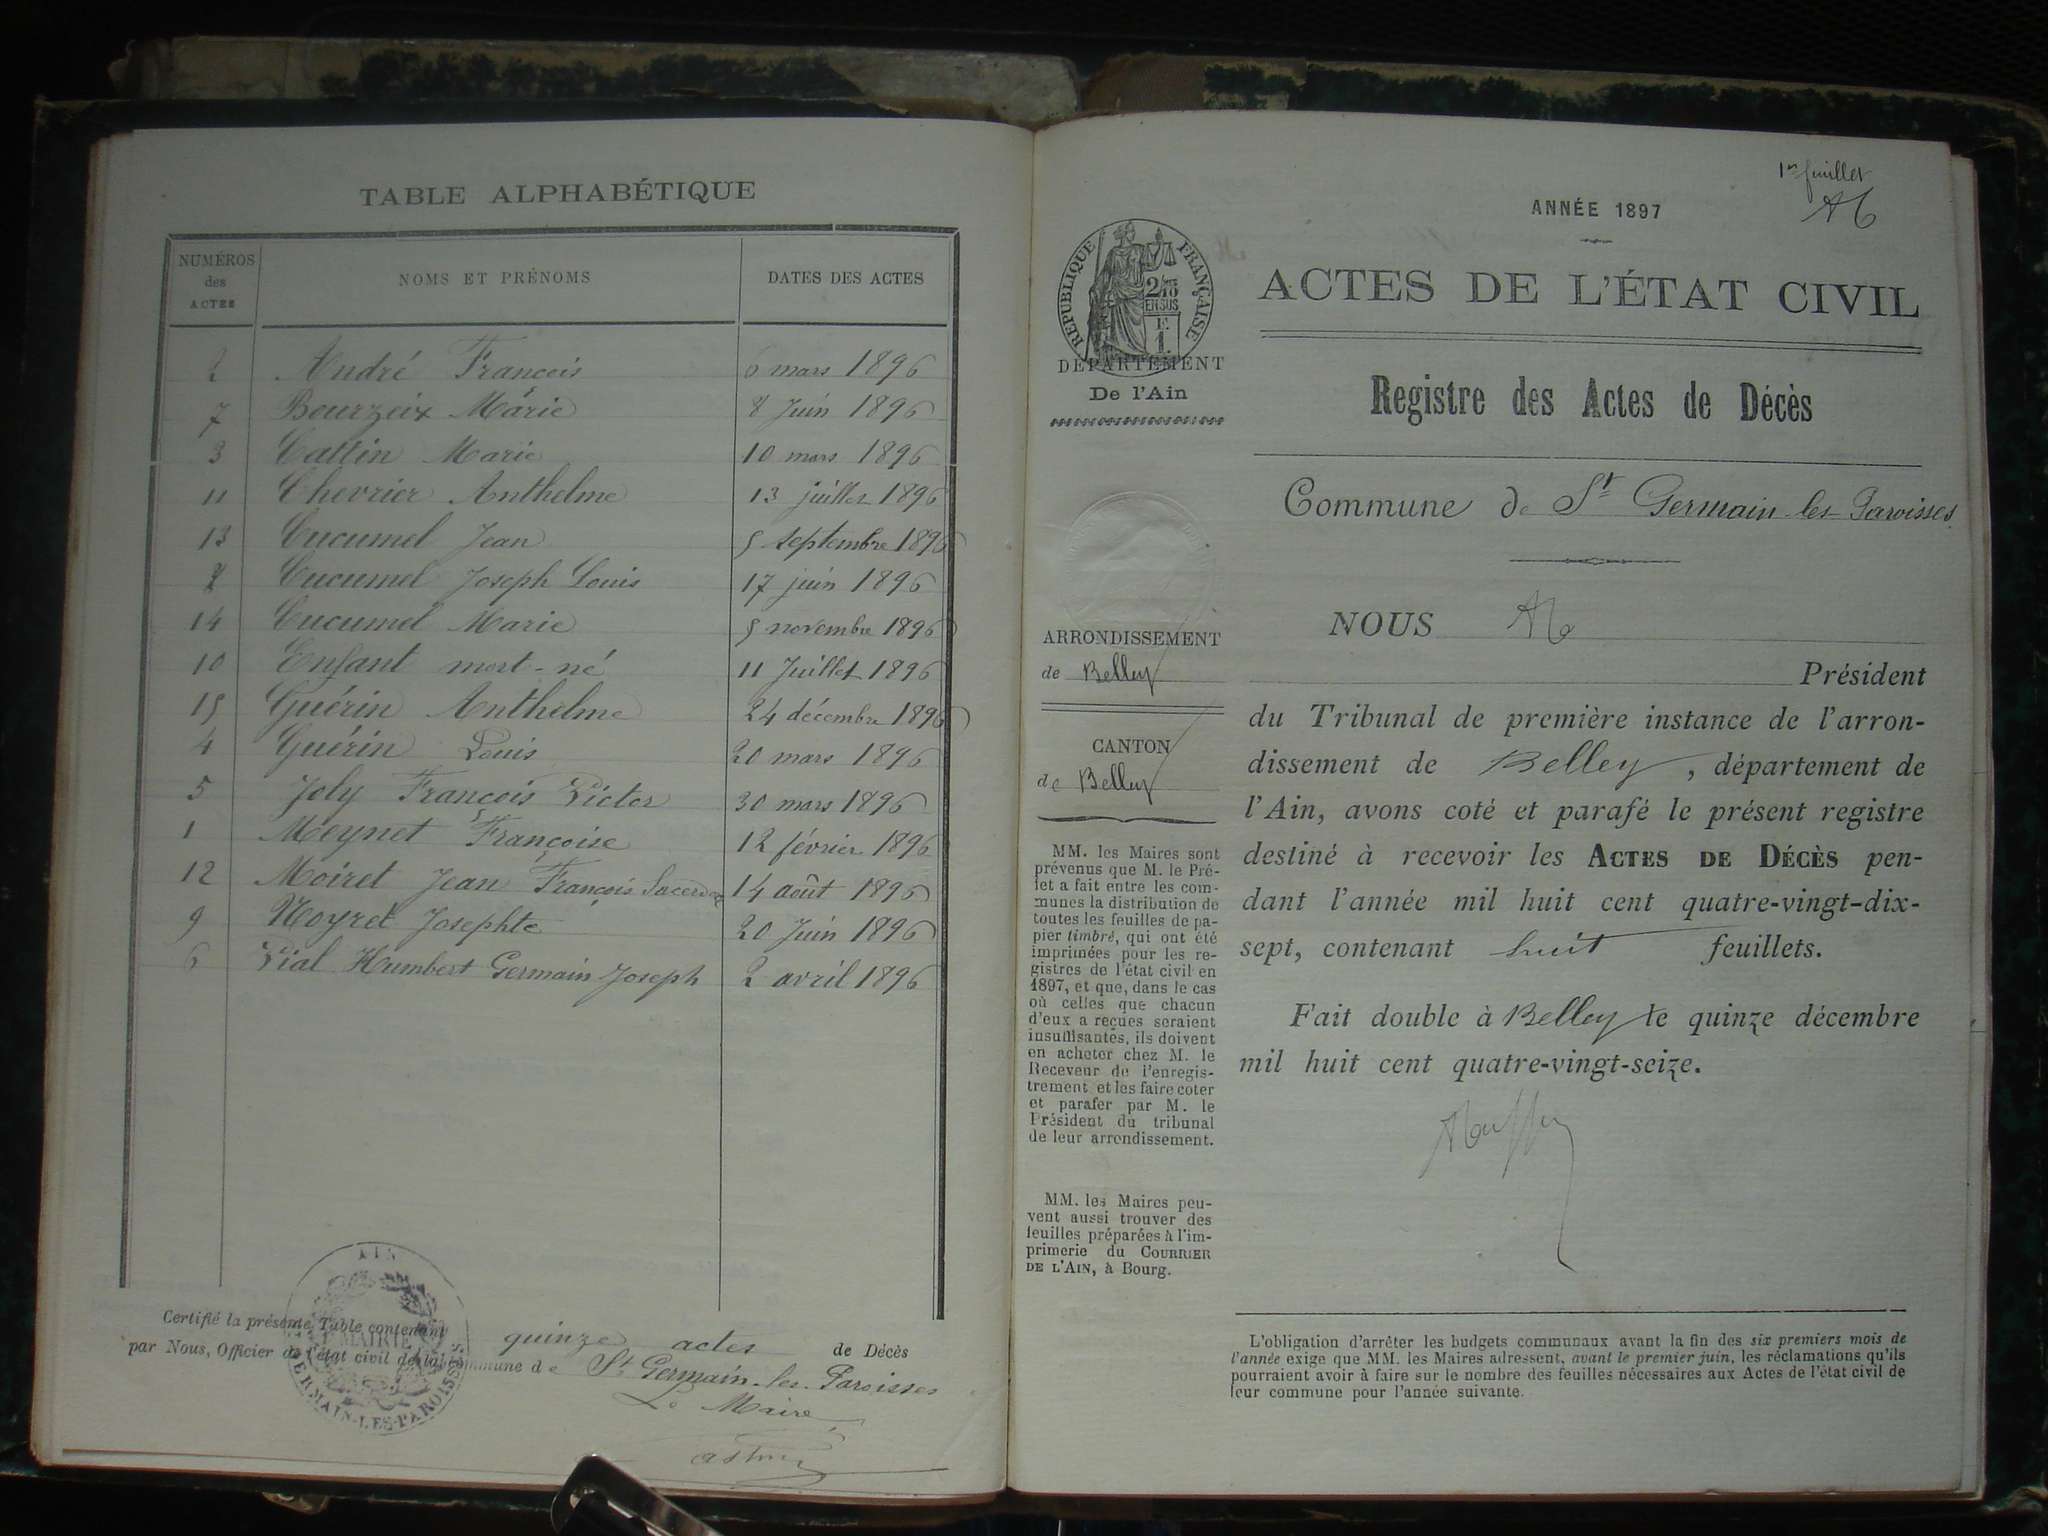 TABLE ALPHABÉTIQUE
NUMÉROS des ACTES NOMS ET PRÉNOMS DATES DES ACTES
2 André François 6 mars 1896
7 Bourzeix Marie 8 Juin 1896
3 Cattin Marie 10 mars 1896
11 Chevrier Anthelme 13 juillet 1896
13 Cucumel Jean 5 septembre 1896
8 Cucumel Joseph Louis 17 juin 1896
14 Cucumel Marie 5 novembre 1896
10 Enfant mort-né 11 Juillet 1896
15 Guérin Anthelme 24 décembre 1896
4 Guérin Louis 20 mars 1896
5 Joly François Victor 30 mars 1896
1 Meynet Françoise 12 février 1896
12 Moiret Jean François 14 août 1896
9 Noyret Josephte 20 Juin 1896
6 Vial Humbert Germain Joseph 2 avril 1896
Certifié la présente Table contenant quinze actes de Décès
par Nous, Officier de l'état civil de la commune de St Germain-les-Paroisses
Le Maire
AIN
MAIRIE
GERMAIN-LES-PAROISSES
1er feuillet
ANNÉE 1897
RÉPUBLIQUE FRANÇAISE
2/10 EN SUS
ACTES DE L'ÉTAT CIVIL
DÉPARTEMENT
De l'Ain
Registre des Actes de Décès
Commune de St Germain-les-Paroisses
ARRONDISSEMENT
de Belley
CANTON
de Belley
MM. les Maires sont
prévenus que M. le Pré-
fet a fait entre les com-
munes la distribution de
toutes les feuilles de pa-
pier timbré, qui ont été
imprimées pour les re-
gistres de l'état civil en
1897, et que, dans le cas
où celles que chacun
d'eux a reçues seraient
insuffisantes, ils doivent
en acheter chez M. le
Receveur de l'enregis-
trement et les faire coter
et parafer par M. le
Président du tribunal
de leur arrondissement.
MM. les Maires peu-
vent aussi trouver des
feuilles préparées à l'im-
primerie du COURRIER
DE L'AIN, à Bourg.
NOUS
Président
du Tribunal de première instance de l'arron-
dissement de Belley, département de
l'Ain, avons coté et parafé le présent registre
destiné à recevoir les ACTES DE DÉCÈS pen-
dant l'année mil huit cent quatre-vingt-dix-
sept, contenant huit feuillets.
Fait double à Belley le quinze décembre
mil huit cent quatre-vingt-seize.
L'obligation d'arrêter les budgets communaux avant la fin des six premiers mois de
l'année exige que MM. les Maires adressent, avant le premier juin, les réclamations qu'ils
pourraient avoir à faire sur le nombre des feuilles nécessaires aux Actes de l'état civil de
leur commune pour l'année suivante.